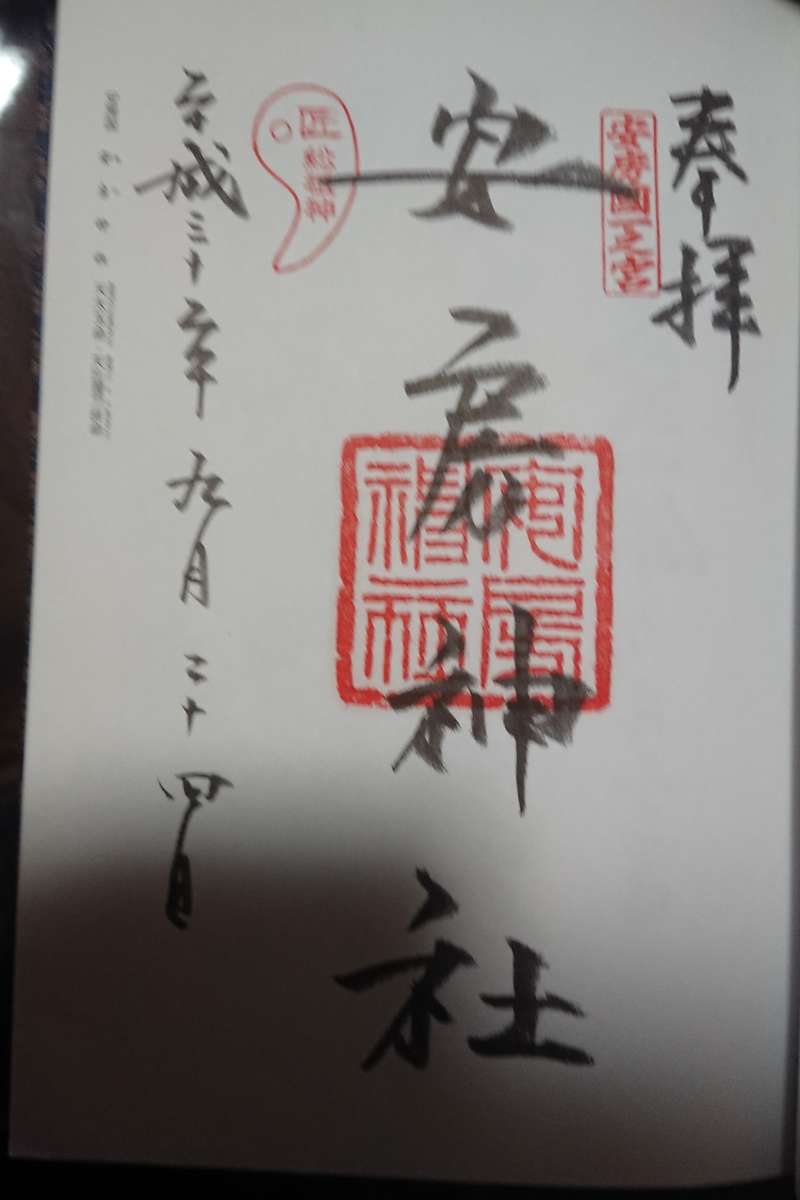 奉拝
安房國一之宮
安房神社
安房神社
匠
総祖神
平成三十年九月二十四日